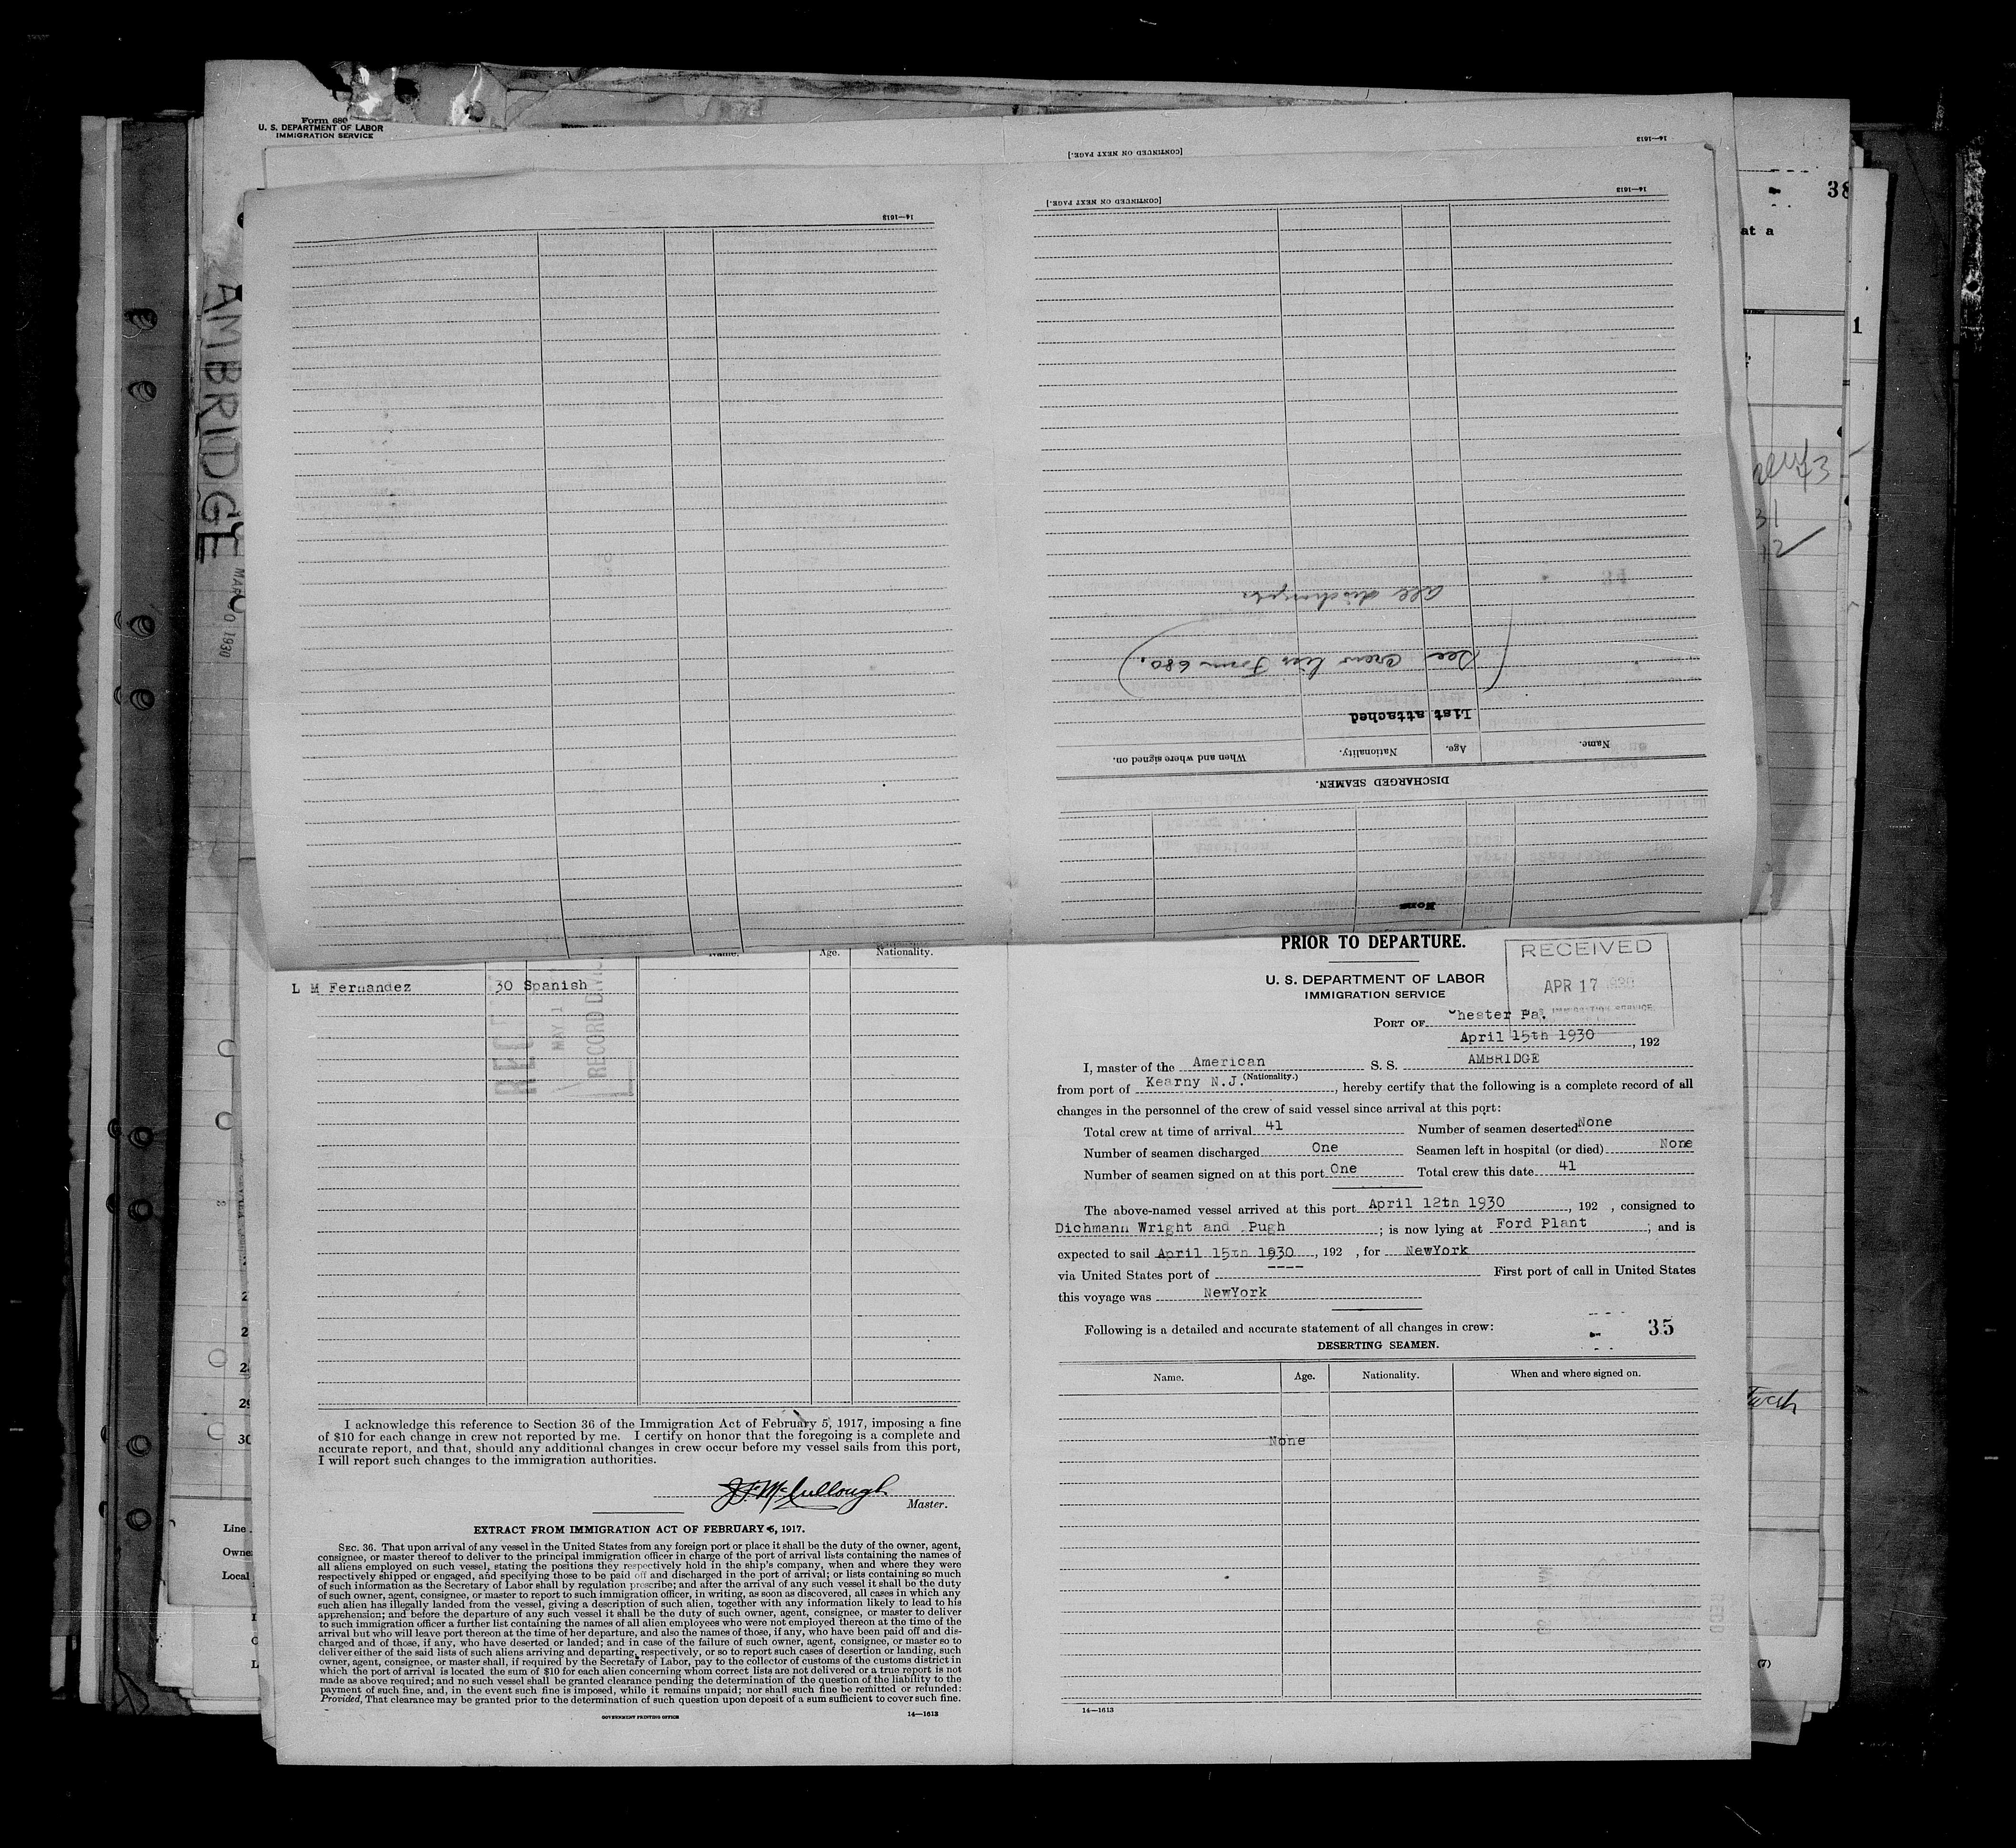 Form 680
U. S. DEPARTMENT OF LABOR
IMMIGRATION SERVICE
AMBRIDGE
1930
[CONTINUED ON NEXT PAGE.]
14—1613
14—1613
[CONTINUED ON NEXT PAGE.]
14—1613
38
at a
1
all discharged
(See Crew list Form 680.)
List attached
Name. Age. Nationality. When and where signed on.
DISCHARGED SEAMEN.
None
Name. Age. Nationality.
L M Fernandez 30 Spanish
REC
MAY 1
RECORD DIVI
I acknowledge this reference to Section 36 of the Immigration Act of February 5, 1917, imposing a fine
of $10 for each change in crew not reported by me. I certify on honor that the foregoing is a complete and
accurate report, and that, should any additional changes in crew occur before my vessel sails from this port,
I will report such changes to the immigration authorities.
J F McCullough
Master.
EXTRACT FROM IMMIGRATION ACT OF FEBRUARY 5, 1917.
SEC. 36. That upon arrival of any vessel in the United States from any foreign port or place it shall be the duty of the owner, agent,
consignee, or master thereof to deliver to the principal immigration officer in charge of the port of arrival lists containing the names of
all aliens employed on such vessel, stating the positions they respectively hold in the ship's company, when and where they were
respectively shipped or engaged, and specifying those to be paid off and discharged in the port of arrival; or lists containing so much
of such information as the Secretary of Labor shall by regulation prescribe; and after the arrival of any such vessel it shall be the duty
of such owner, agent, consignee, or master to report to such immigration officer, in writing, as soon as discovered, all cases in which any
such alien has illegally landed from the vessel, giving a description of such alien, together with any information likely to lead to his
apprehension; and before the departure of any such vessel it shall be the duty of such owner, agent, consignee, or master to deliver
to such immigration officer a further list containing the names of all alien employees who were not employed thereon at the time of the
arrival but who will leave port thereon at the time of her departure, and also the names of those, if any, who have been paid off and dis-
charged and of those, if any, who have deserted or landed; and in case of the failure of such owner, agent, consignee, or master so to
deliver either of the said lists of such aliens arriving and departing, respectively, or so to report such cases of desertion or landing, such
owner, agent, consignee, or master shall, if required by the Secretary of Labor, pay to the collector of customs of the customs district in
which the port of arrival is located the sum of $10 for each alien concerning whom correct lists are not delivered or a true report is not
made as above required; and no such vessel shall be granted clearance pending the determination of the question of the liability to the
payment of such fine, and, in the event such fine is imposed, while it remains unpaid; nor shall such fine be remitted or refunded:
Provided, That clearance may be granted prior to the determination of such question upon deposit of a sum sufficient to cover such fine.
GOVERNMENT PRINTING OFFICE
14—1613
PRIOR TO DEPARTURE.
RECEIVED
APR 17 1930
U. S. DEPARTMENT OF LABOR
IMMIGRATION SERVICE
PORT OF Chester Pa.
April 15th 1930, 192
I, master of the American S. S. AMBRIDGE
(Nationality.)
from port of Kearny N.J., hereby certify that the following is a complete record of all
changes in the personnel of the crew of said vessel since arrival at this port:
Total crew at time of arrival 41 Number of seamen deserted None
Number of seamen discharged One Seamen left in hospital (or died) None
Number of seamen signed on at this port One Total crew this date 41
The above-named vessel arrived at this port April 12th 1930, 192 , consigned to
Dichmann Wright and Pugh; is now lying at Ford Plant; and is
expected to sail April 15th 1930, 192 , for NewYork
via United States port of ---- First port of call in United States
this voyage was NewYork
Following is a detailed and accurate statement of all changes in crew:
35
DESERTING SEAMEN.
Name. Age. Nationality. When and where signed on.
None
14—1613
Line
Owne
Local
(7)